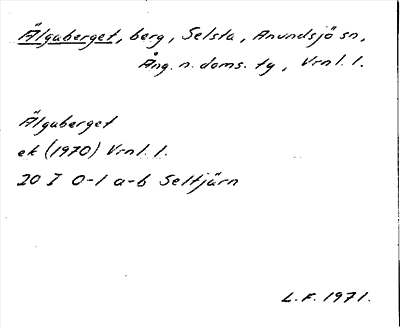 Älgaberget, berg, Selsta, Anundsjö sn,
Ång. n. doms. tg, Vrnl. l.
Älgaberget
ek (1970) Vrnl. l.
20 I 0-1 a-b Seltjärn
L.F. 1971.